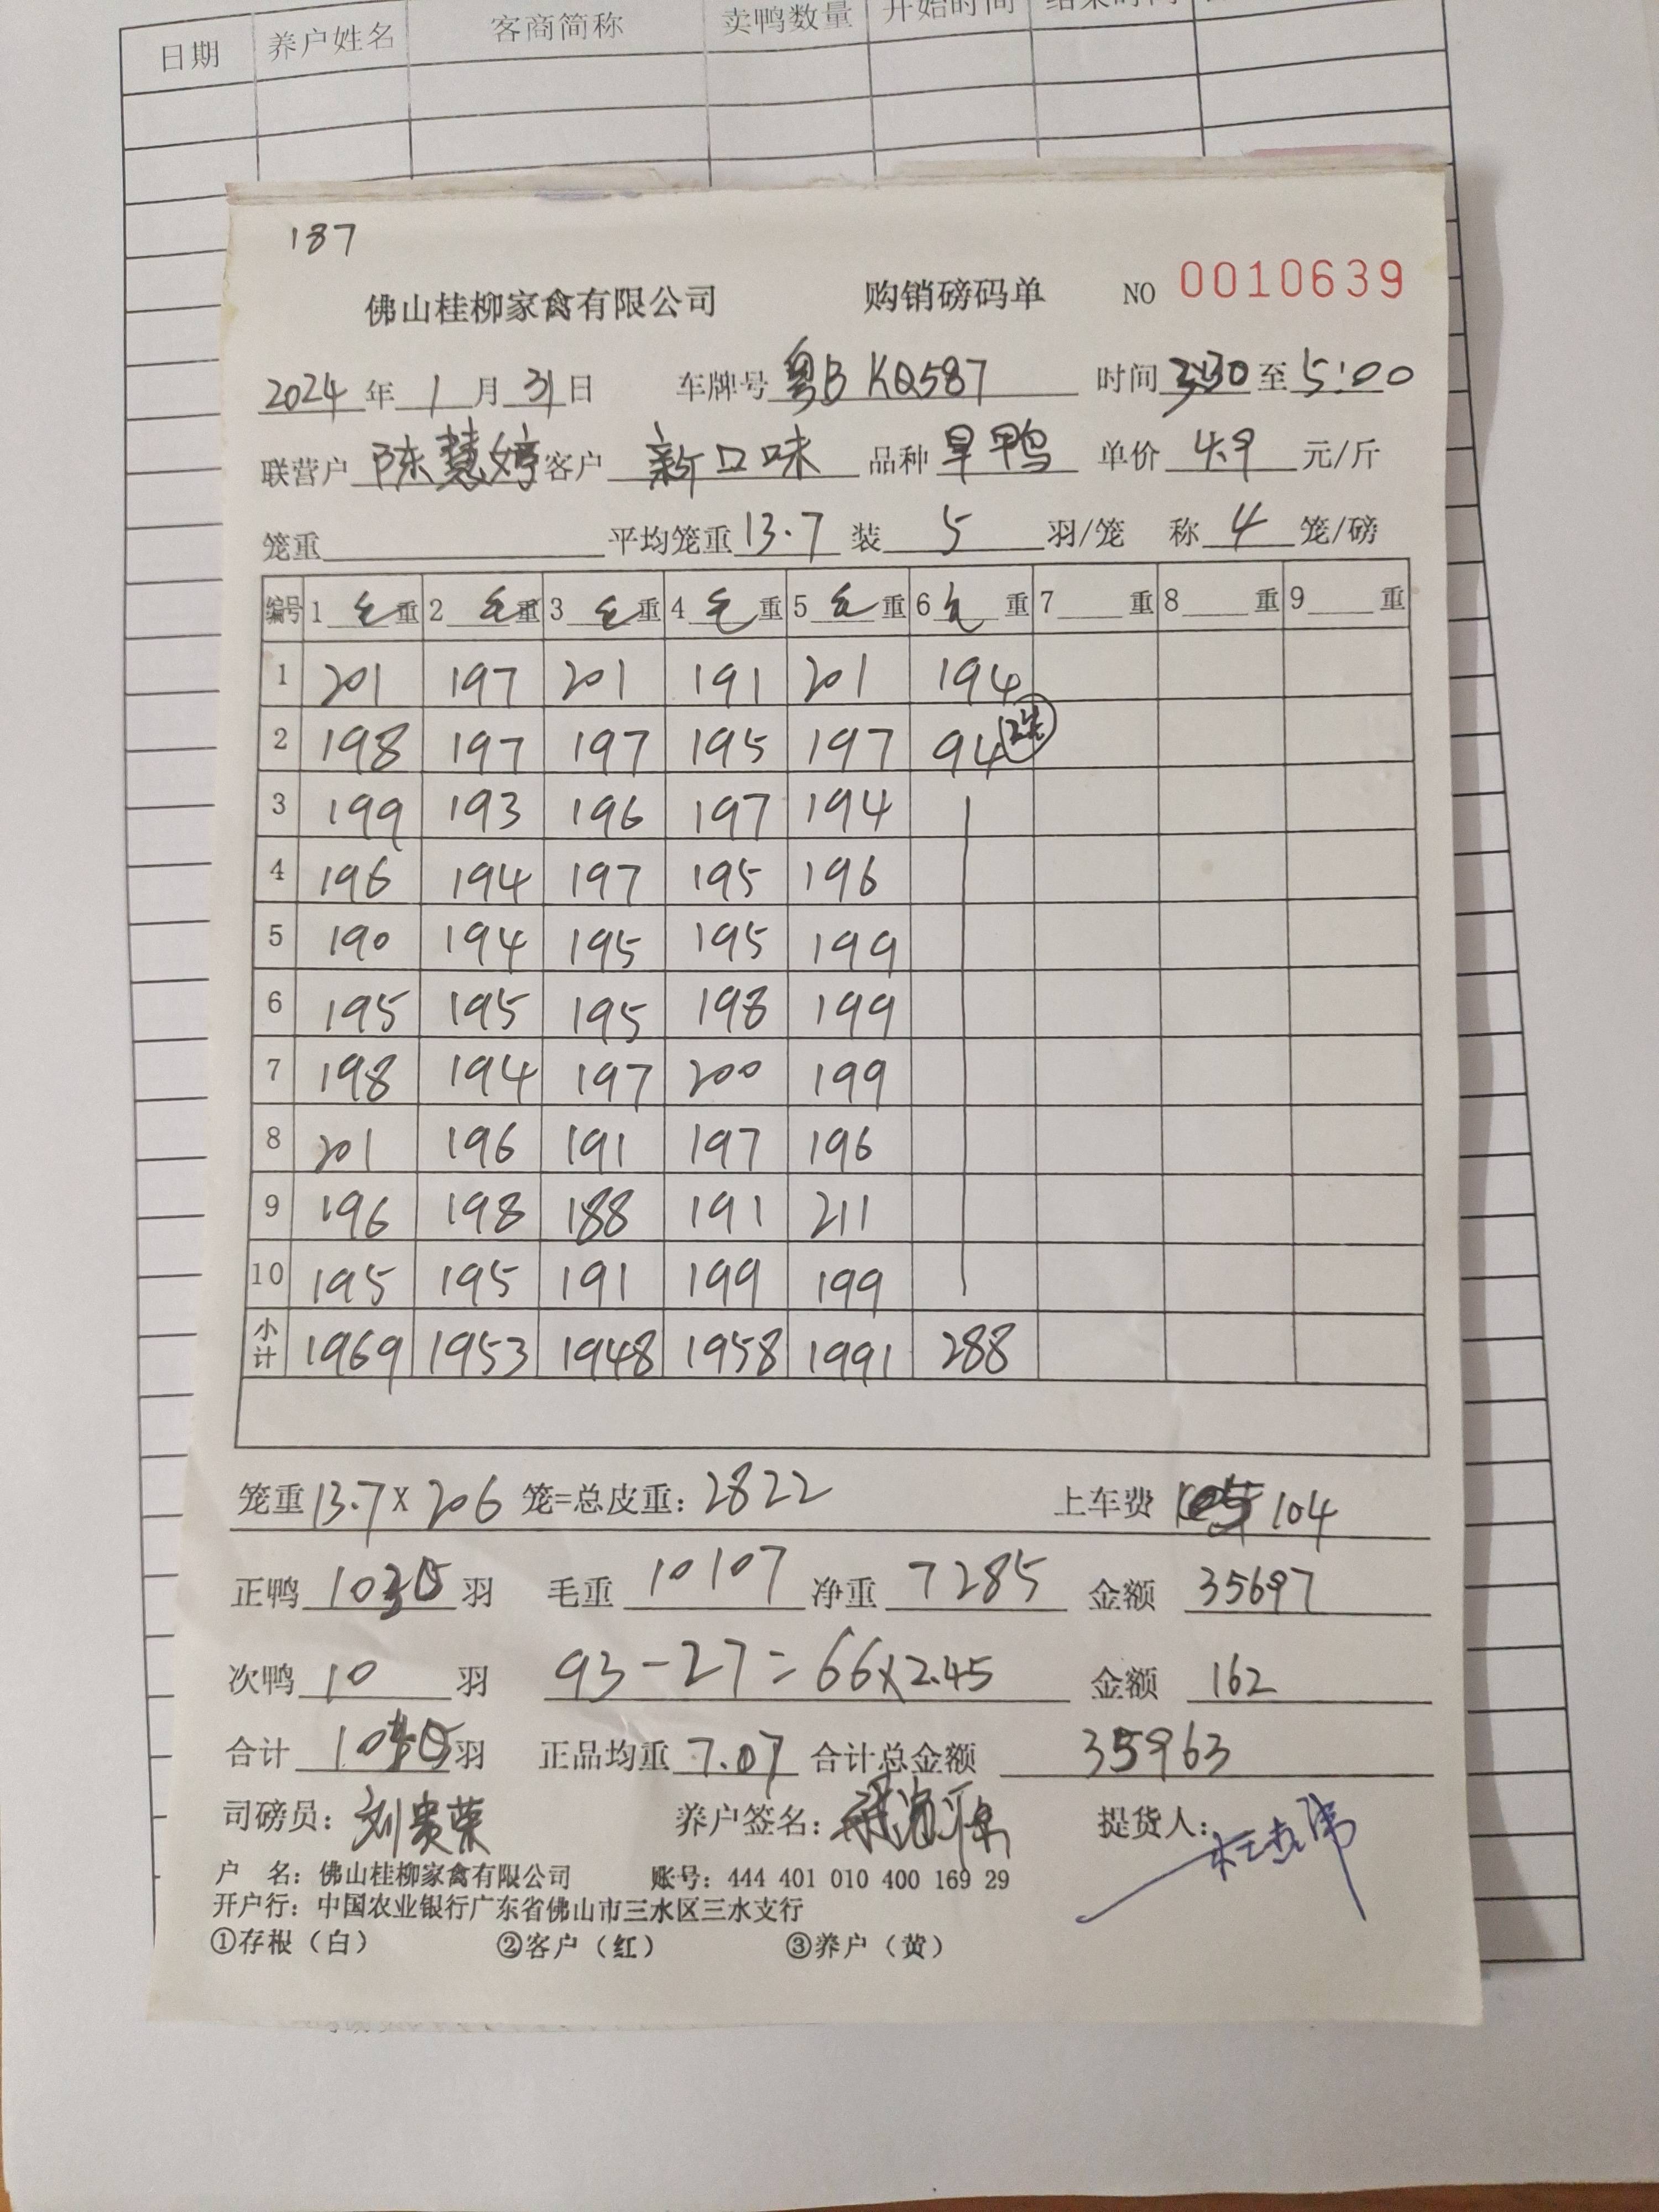 日期 养户姓名 客商简称 卖鸭数量 开始时间 结束时间
187
佛山桂柳家禽有限公司 购销磅码单 NO 0010639
2024年1月31日 车牌号 粤B KQ587 时间 3:30 至 5:00
联营户 陈慧婷 客户 新口味 品种 旱鸭 单价 4.9 元/斤
笼重 平均笼重 13.7 装 5 羽/笼 称 4 笼/磅
编号 1 毛重 2 毛重 3 毛重 4 毛重 5 毛重 6 毛重 7 重 8 重 9 重
1 201 197 201 191 201 194
2 198 197 197 195 197 94 (2笼)
3 199 193 196 197 194
4 196 194 197 195 196
5 190 194 195 195 199
6 195 195 195 198 199
7 198 194 197 200 199
8 201 196 191 197 196
9 196 198 188 191 211
10 195 195 191 199 199
小计 1969 1953 1948 1958 1991 288
笼重 13.7 X 206 笼=总皮重: 2822 上车费 104
正鸭 1030 羽 毛重 10107 净重 7285 金额 35697
次鸭 10 羽 93-27=66x2.45 金额 162
合计 1040 羽 正品均重 7.07 合计总金额 35963
司磅员: 刘贵荣 养户签名: 提货人:
户 名: 佛山桂柳家禽有限公司 账号: 444 401 010 400 169 29
开户行: 中国农业银行广东省佛山市三水区三水支行
①存根（白） ②客户（红） ③养户（黄）